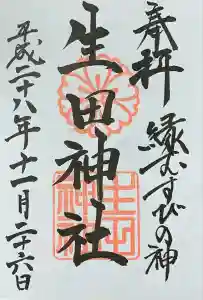 奉拝 縁むすびの神
生田神社
平成二十八年十一月二十六日
生田神社